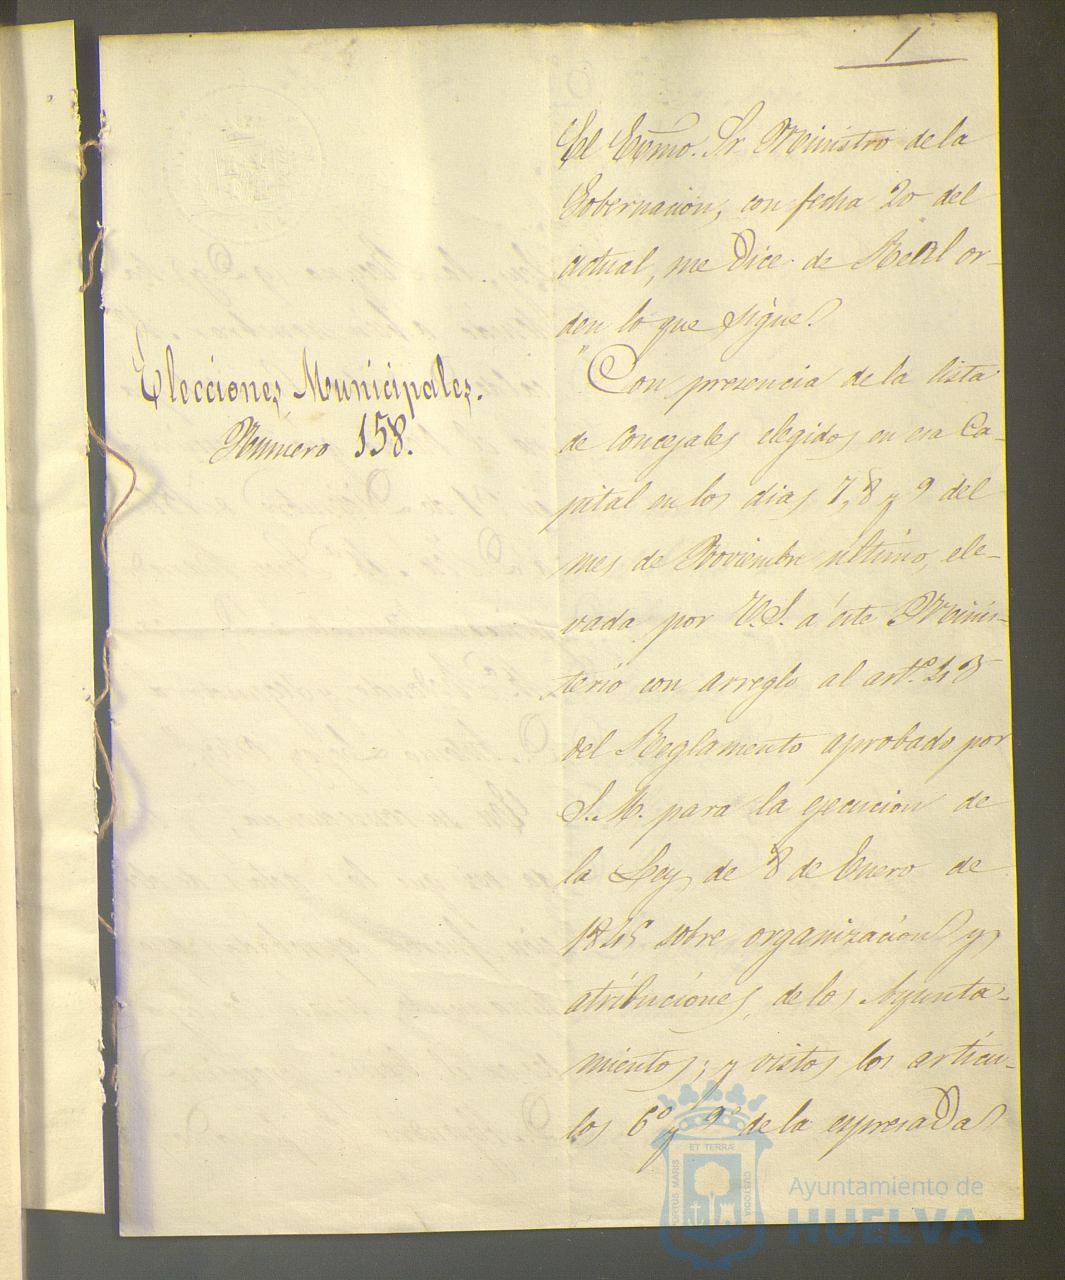 1
El Excmo. Sr Ministro de la
Gobernacion, con fecha 20 del
actual, me dice de Real or-
den lo que sigue.
Elecciones Municipales.
Numero 158.
"Con presencia de la lista
de Concejales elegidos en esa Ca-
pital en los dias 7, 8 y 9 del
mes de Noviembre ultimo, ele-
vada por V.S. a este Minis-
terio con arreglo al artº.
del Reglamento aprobado por
S.M. para la ejecucion de
la Ley de 8 de Enero de
1845 sobre organizacion y
atribuciones de los Ayunta-
mientos; y vistos los articu-
los 6º y 9º de la espresada
ET TERRÆ
PORTUS MARIS
CUSTODIA
Ayuntamiento de
HUELVA